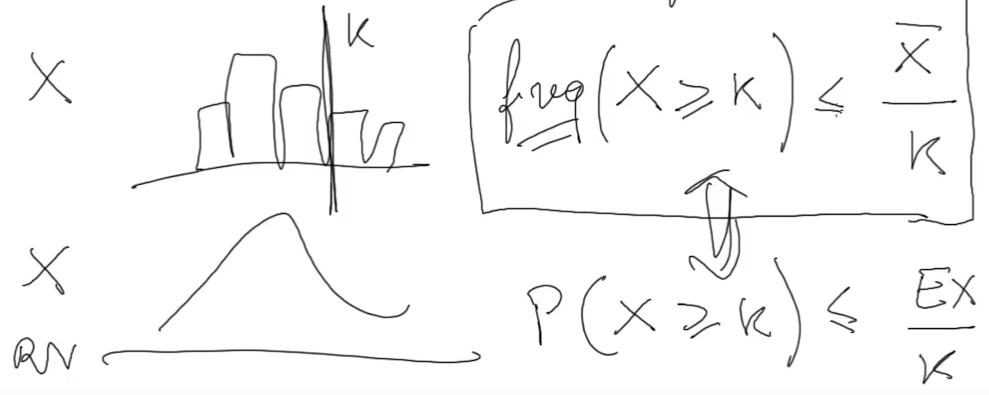 X
K
freq(X ≥ K) ≤ X̄/K
X
RN
P(X ≥ K) ≤ EX/K